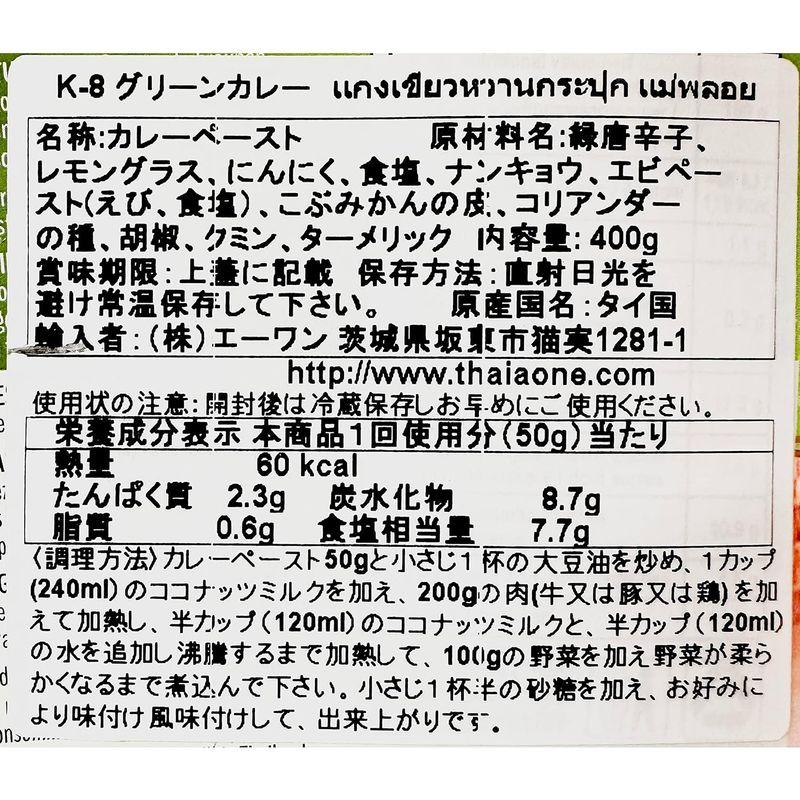 K-8 グリーンカレー แกงเขียวหวานกระปุก แม่พลอย
名称:カレーペースト 原材料名:緑唐辛子、
レモングラス、にんにく、食塩、ナンキョウ、エビペー
スト(えび、食塩)、こぶみかんの皮、コリアンダー
の種、胡椒、クミン、ターメリック 内容量: 400g
賞味期限:上蓋に記載 保存方法:直射日光を
避け常温保存して下さい。 原産国名:タイ国
輸入者:(株)エーワン 茨城県坂東市猫実1281-1
http://www.thaiaone.com
使用状の注意:開封後は冷蔵保存しお早めにご使用ください。
栄養成分表示 本商品1回使用分(50g)当たり
熱量 60 kcal
たんぱく質 2.3g 炭水化物 8.7g
脂質 0.6g 食塩相当量 7.7g
〈調理方法〉カレーペースト50gと小さじ1杯の大豆油を炒め、1カップ
(240ml)のココナッツミルクを加え、200gの肉(牛又は豚又は鶏)を加
えて加熱し、半カップ(120ml)のココナッツミルクと、半カップ(120ml)
の水を追加し沸騰するまで加熱して、100gの野菜を加え野菜が柔ら
かくなるまで煮込んで下さい。小さじ1杯半の砂糖を加え、お好みに
より味付け風味付けして、出来上がりです。